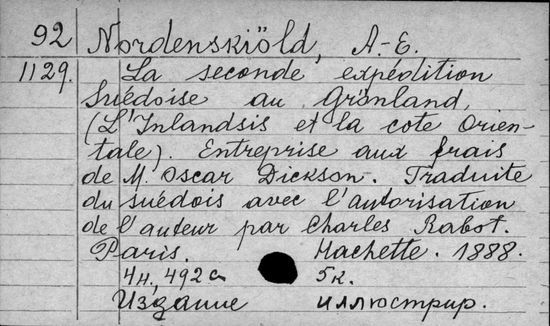 92 Nordenskiöld, A.-E.
1129. La seconde expédition
Suédoise au Grönland,
(L'Inlandsis et la cote Orien-
tale). Entreprise aux frais
de M. Oscar Dickson. Traduite
du suédois avec l'autorisation
de l'auteur par Charles Rabot.
Paris. Hachette. 1888.
4н, 492 с 5к.
Издание иллюстрир.